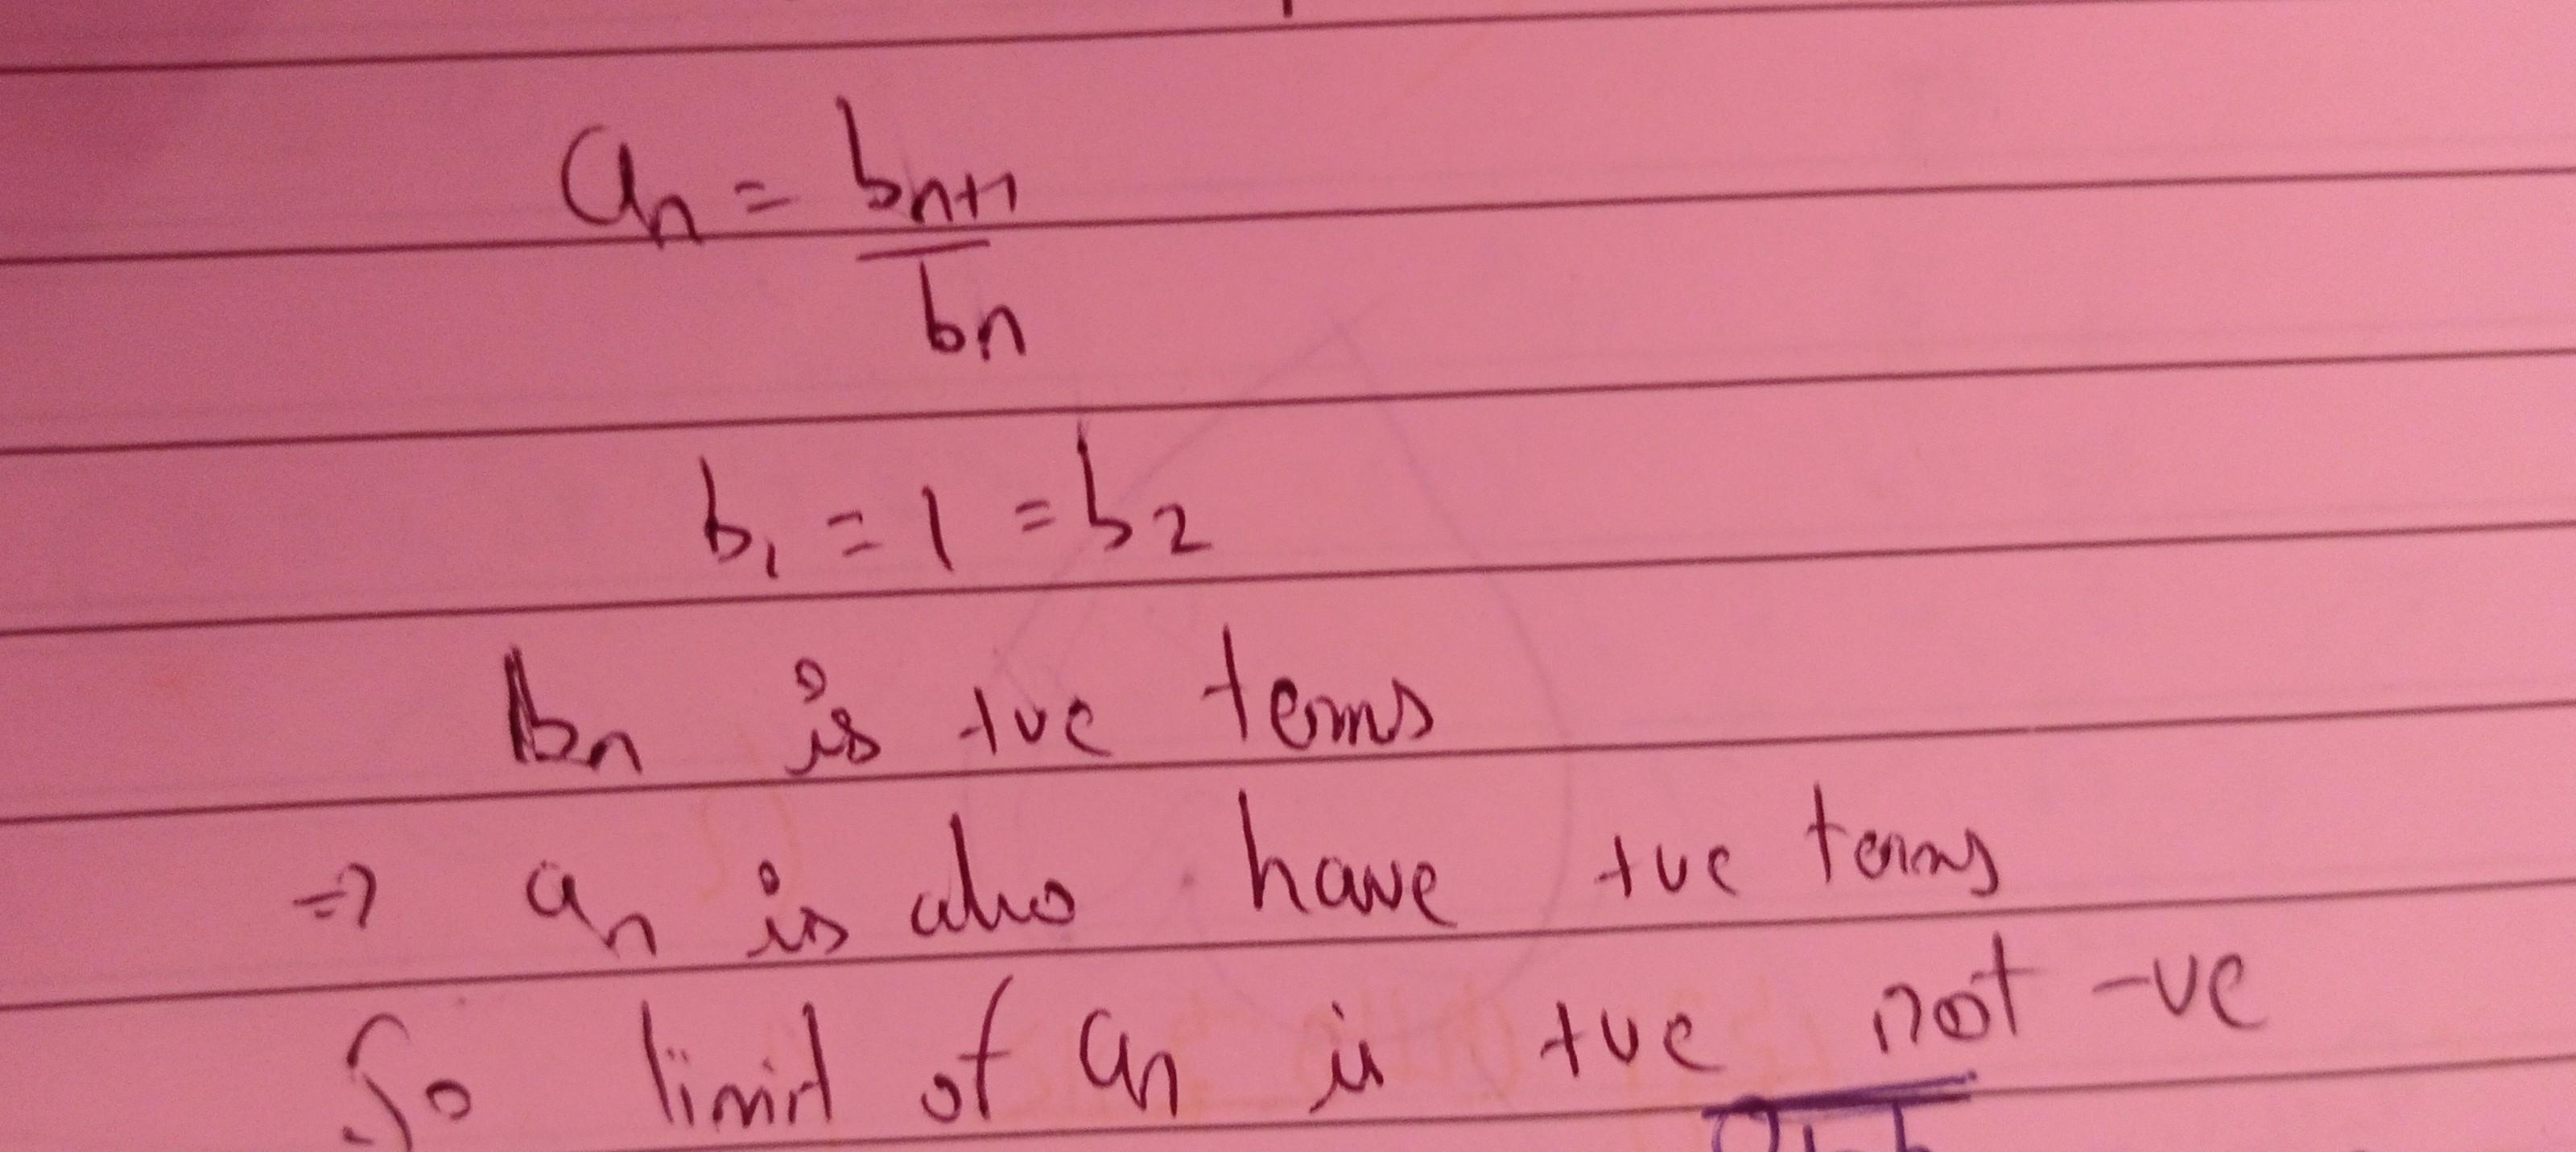 an = bn+1
bn
b1 = 1 = b2
bn is +ve terms
=> an is also have +ve terms
So limit of an is +ve not -ve